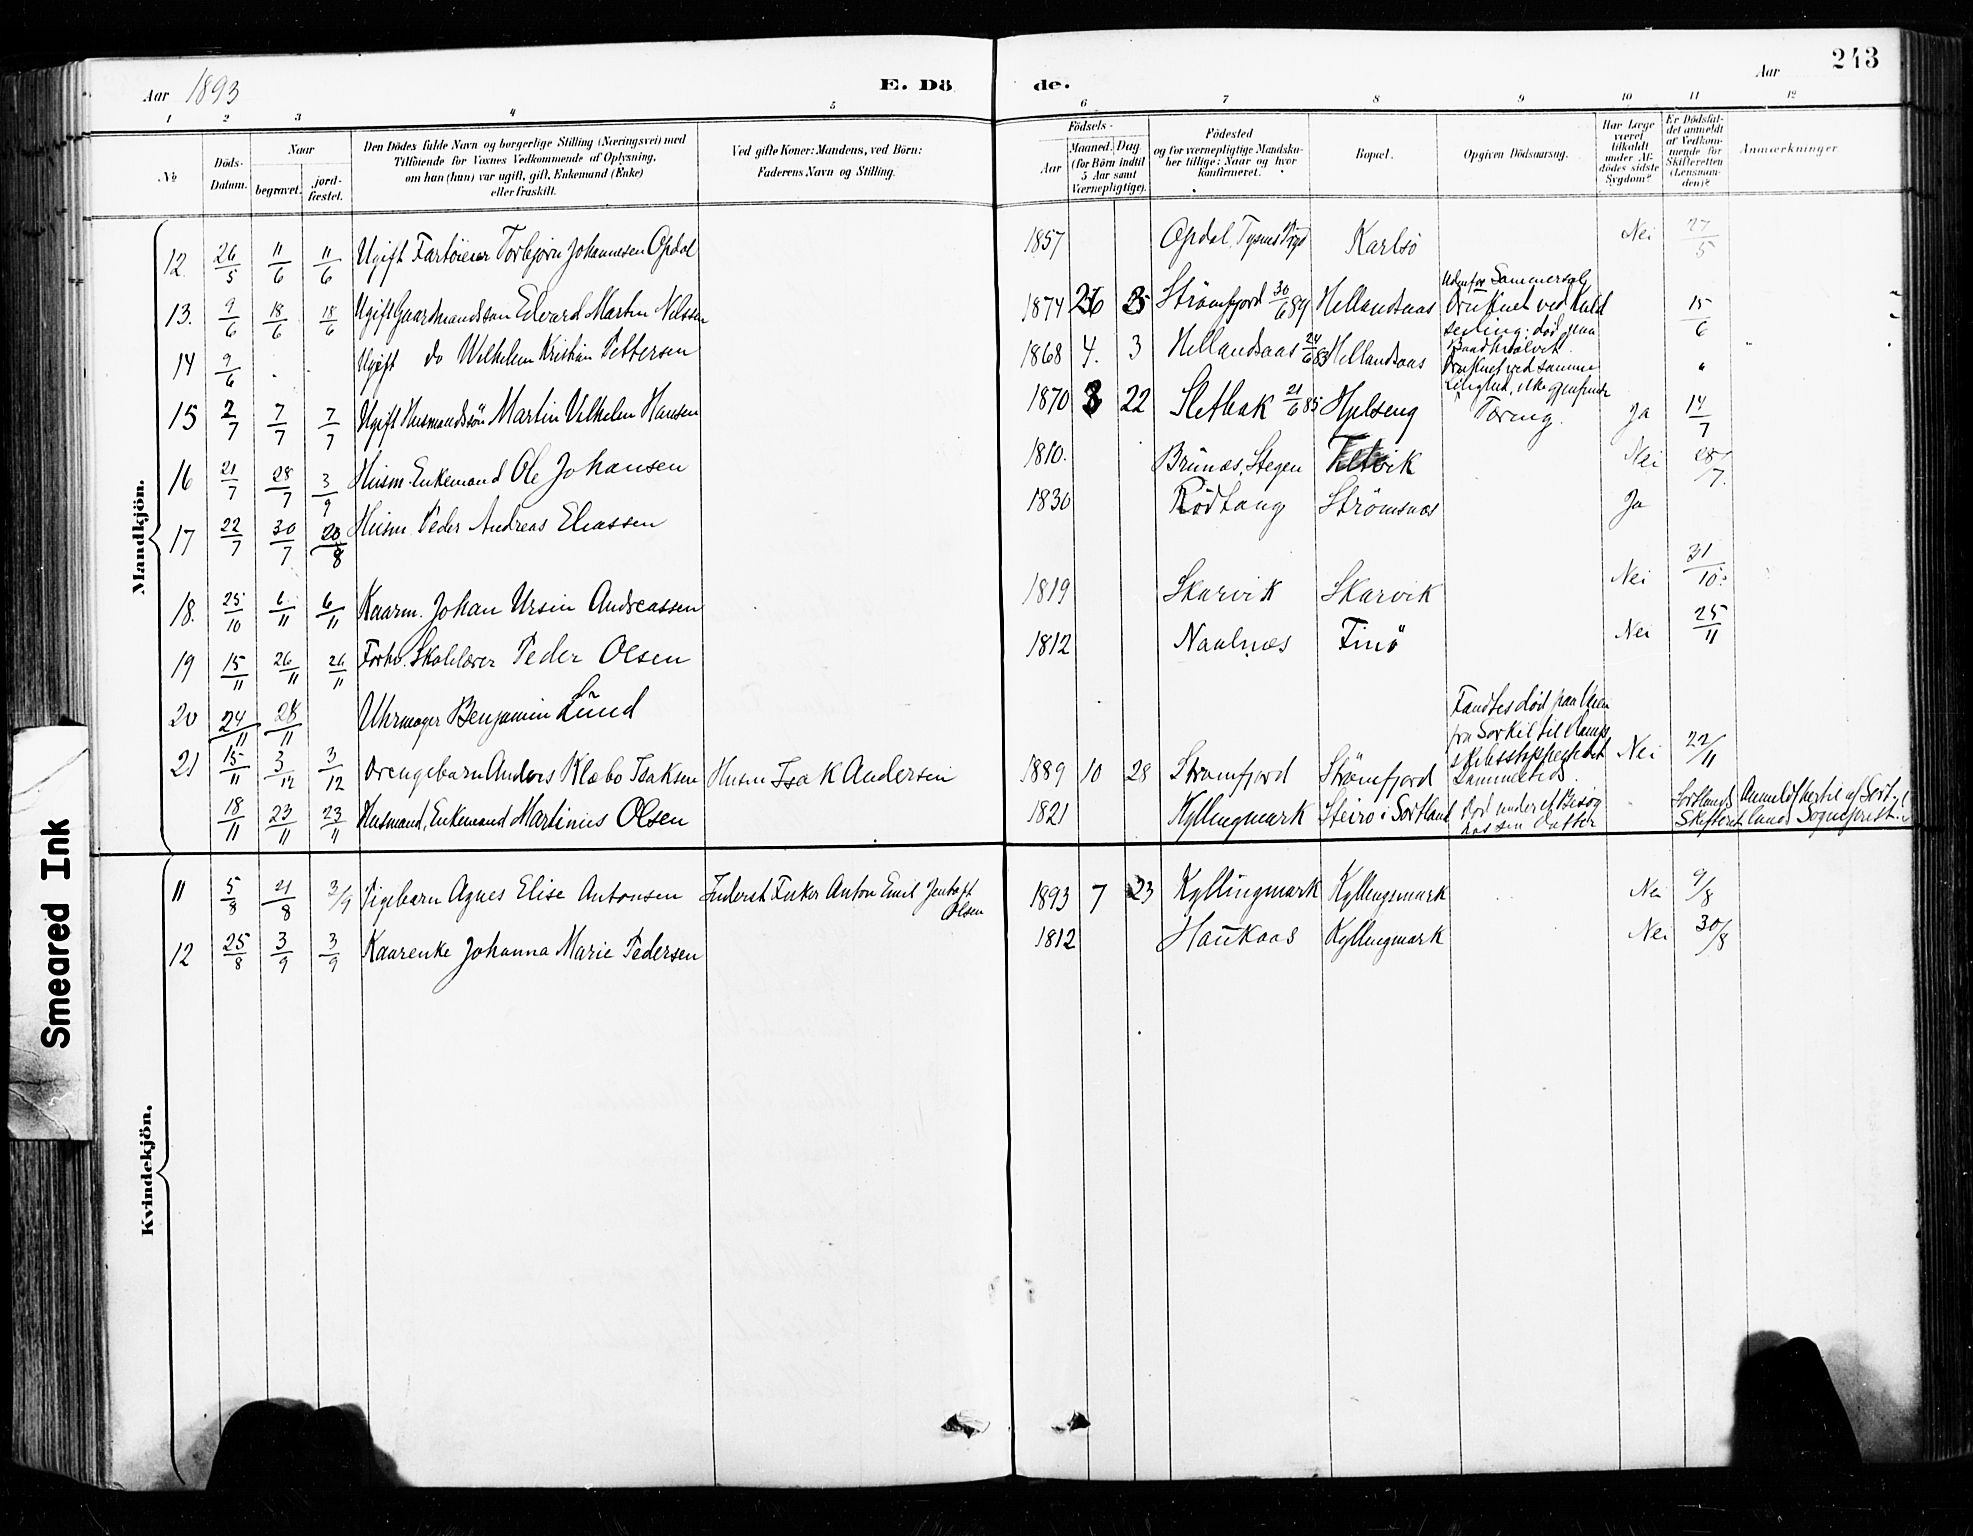 Aar 1893
E. Dö
de.
Aar
243
1 2 3 4 5 6 7 8 9 10 11 12
No
Döds-
Datum.
Naar
begravet.
jord-
fæstet.
Den Dödes fulde Navn og borgerlige Stilling (Næringsvei) med
Tilföiende for Voxnes Vedkommende af Oplysning,
om han (hun) var ugift, gift, Enkemand (Enke)
eller fraskilt.
Ved gifte Koner: Mandens, ved Börn:
Faderens Navn og Stilling.
Födsels-
Aar
Maaned. Dag
(for Börn indtil
5 Aar samt
Værnepligtige).
Födested
og for værnepligtige Mandskaber tillige: Naar og hvor
konfirmeret.
Bopæl.
Opgiven Dödsaarsag.
Har Læge
været
tilkaldt
under Afdödes sidste
Sygdom?
Er Dödsfaldet anmeldt
af Vedkommende for
Skifteretten
(Lensmanden)?
Anmærkninger
Mandkjön.
12. 26/5 11/6 11/6 Ugift Fartøieier Torbjørn Johannesen Opdal 1857 Opdal, Tysnes Karlsö Nei 27/5
13. 9/6 18/6 18/6 Ugift Gaardmandssøn Edvard Martin Nilssen 1874 26 25 Strømfjord 30/6 89 Hellandsnas Udenfor Sommersæl
Druknet ved Kuld
seiling, død paa
15/6
14 9/6 . . Ugift do Wilhelm Kristian Pettersen 1868 4. 3 Hellandsaas 24/6 83 Hellandsaas
Druknet ved samme
Leilighed, ikke gjenfunde "
15 2/7 7/7 7/7 Ugift Husmandssön Martin Vilhelm Hansen 1870 3 22 Sletbak 21/6 85 Hjelseng Tæring. Ja 14/7
16 21/7 28/7 3/9 Husm. Enkemand Ole Johansen 1810. Brunæs, Stegen Nei 28/7.
17 22/7 30/7 20/8 Husm. Peder Andreas Eliassen 1830 Rödtang Strømsnæs Ja
18. 25/10 6/11 6/11 Kaarm. Johan Ursin Andreassen 1819 Skarvik Skarvik Nei 31/10.
19 15/11 26/11 26/11 Forhv. Skolelærer Peder Olsen 1812 Naalnæs Finö Nei 25/11
20 24/11 28/11 Uhrmager Benjamin Lund Fandtes död paa Veien
fra Sorkil til Damp
skibsstoppestedet
sammesteds.
21 15/11 3/12 3/12 Drengebarn Anders Klæbo Isaksen Husm Isak Andersen 1889 10 28 Strømfjord Strømfjord Nei 22/11
18/11 23/11 23/11 Husmand, Enkemand Martinius Olsen 1821 Kyllingmark Steiro i Sortland Død under et Besøg
hos sin Datter
Sortlands
Skifteret
Anmeldt hertil af Sort
lands Sogneprest.
Kvindekjön.
11 5/8 21/8 3/9 Pigebarn Agnes Elise Antonsen Inderst Fisker Anton Emil Jentoft
Olsen 1893 7 23 Kyllingmark Kyllingsmark Nei 9/8
12 25/8 3/9 3/9 Kaarenke Johanna Marie Pedersen 1812 Haukaas Kyllingmark Nei 30/8
Smeared Ink